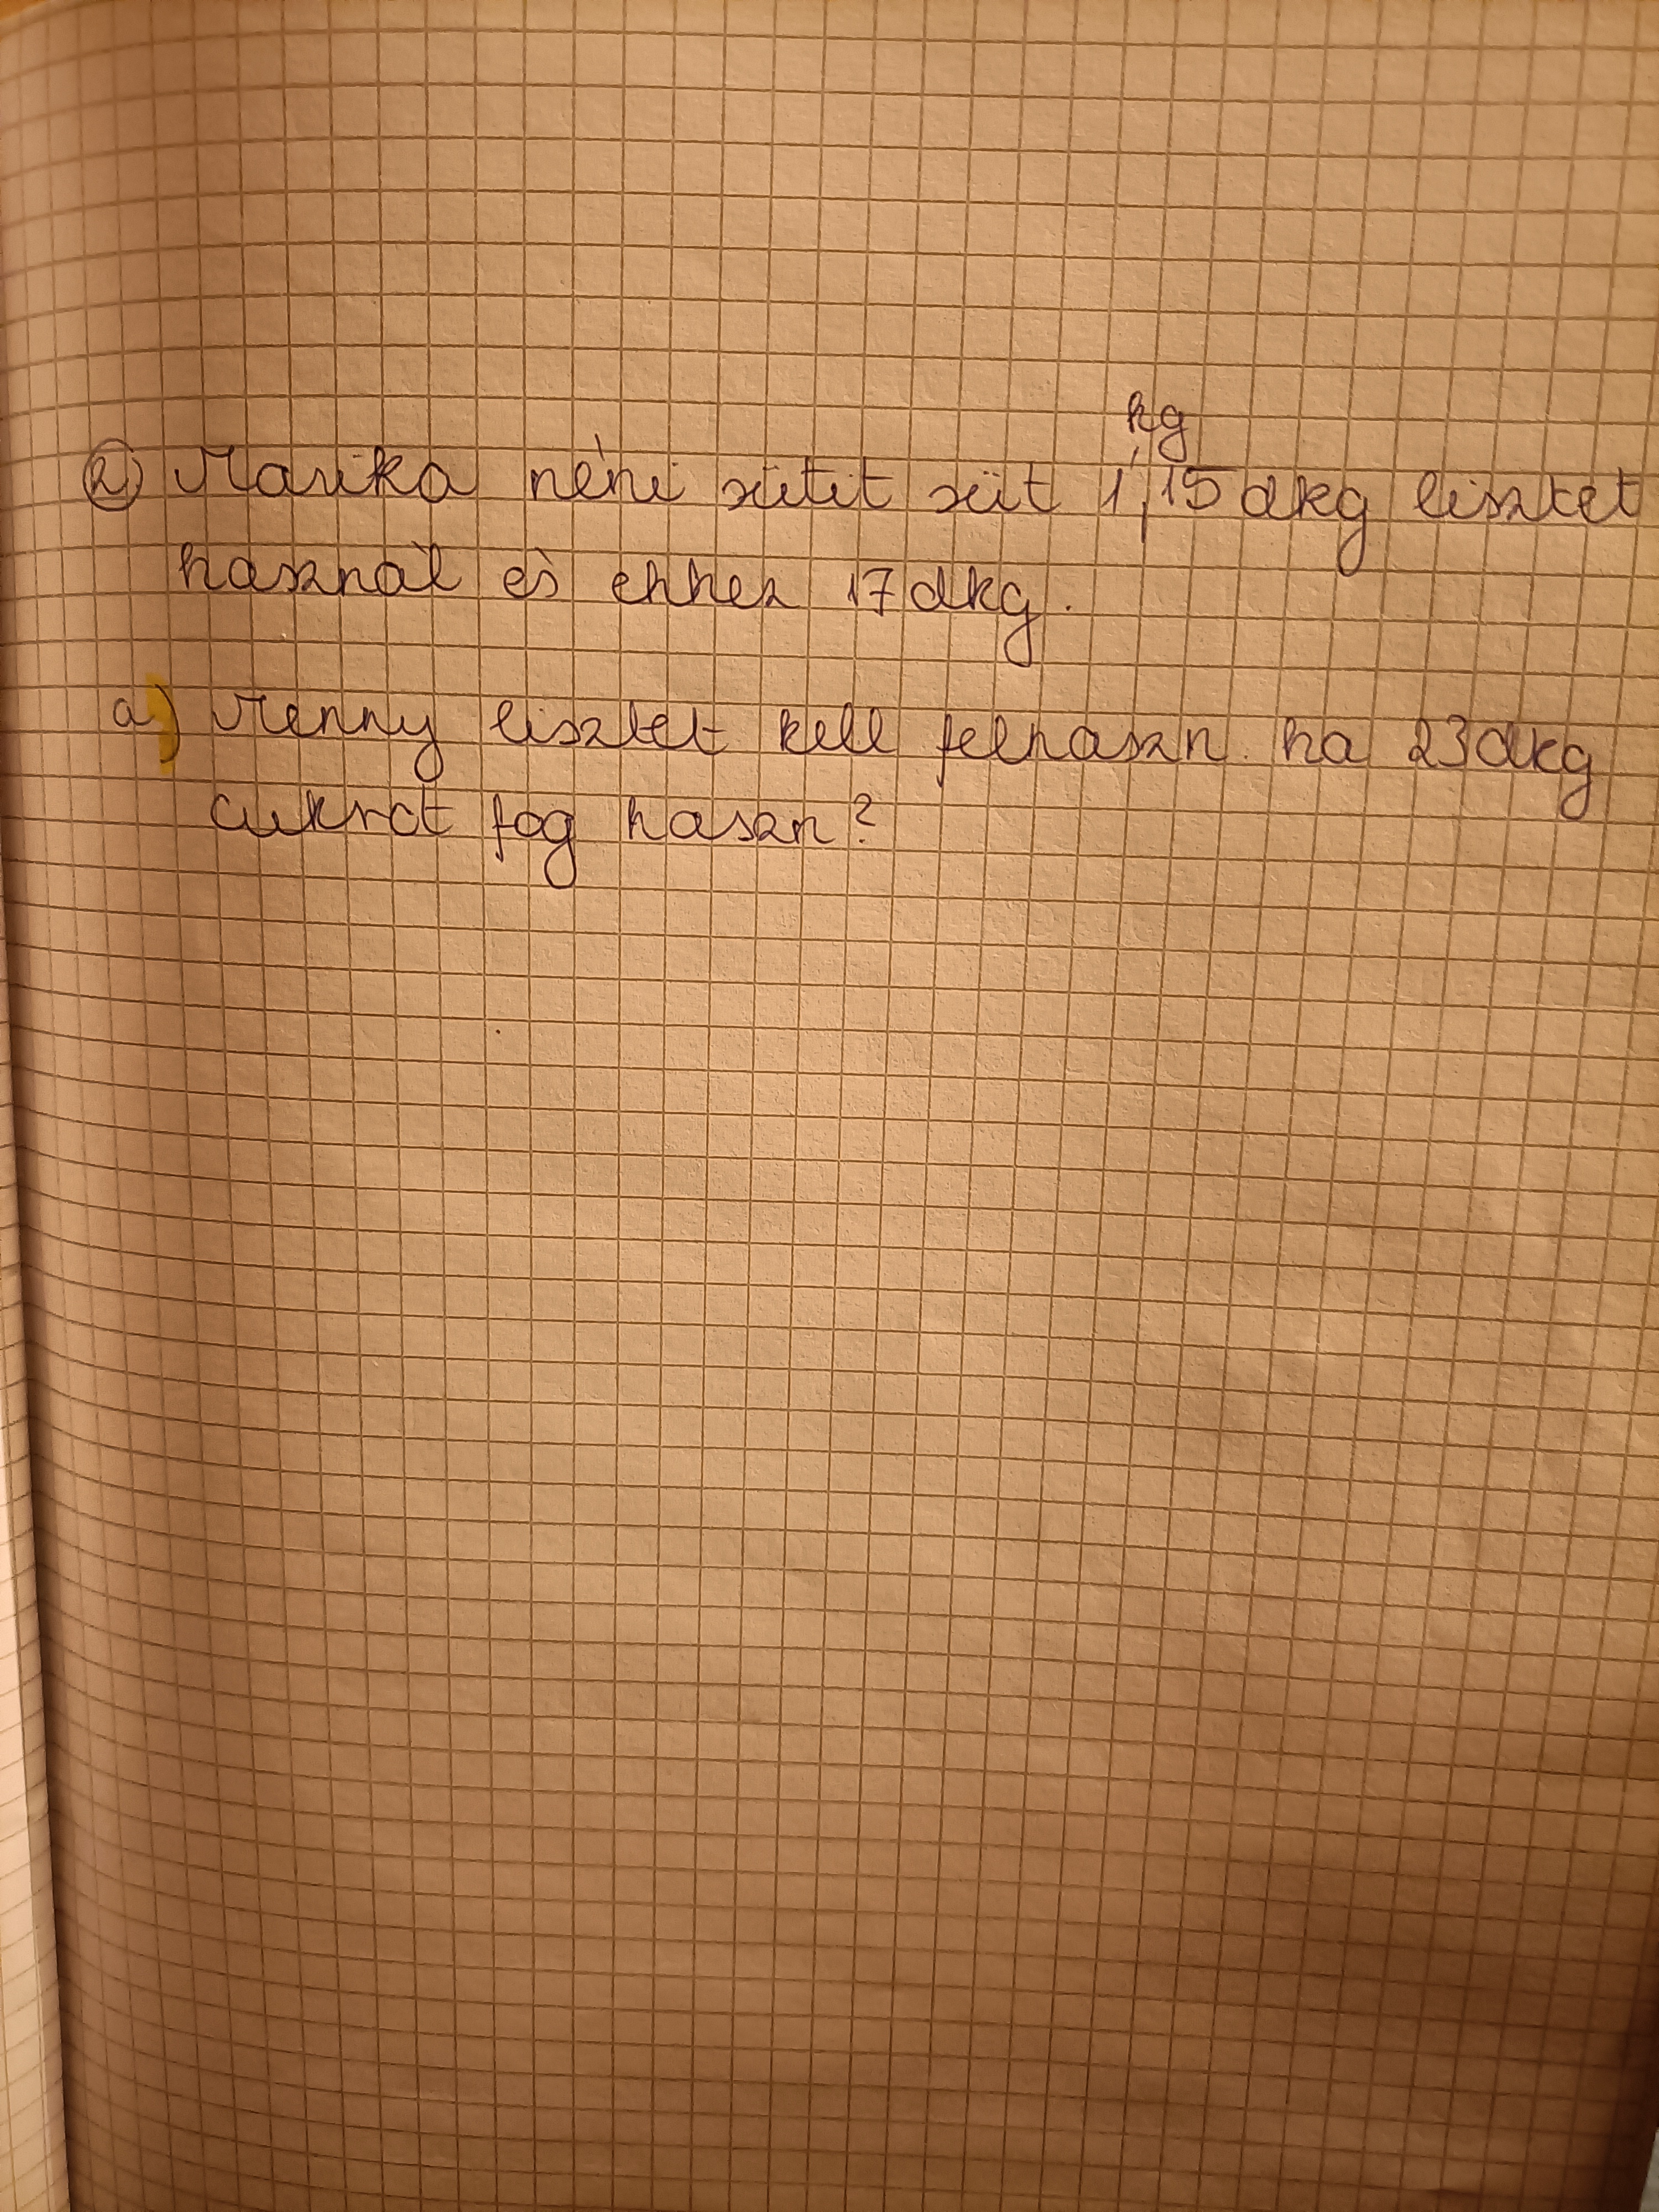 kg
2) Marika néni sütit süt 1,15 dkg lisztet
használ és ehhez 17 dkg.
a) Menny lisztet kell felhaszn. ha 23 dkg
cukrot fog haszn?